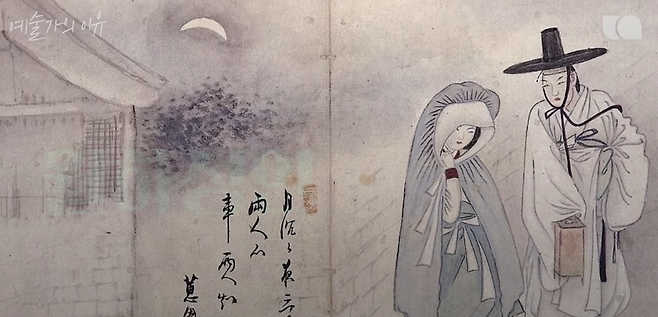 예술가의 이유
月沉〻夜三
兩人心
事兩人知
蕙